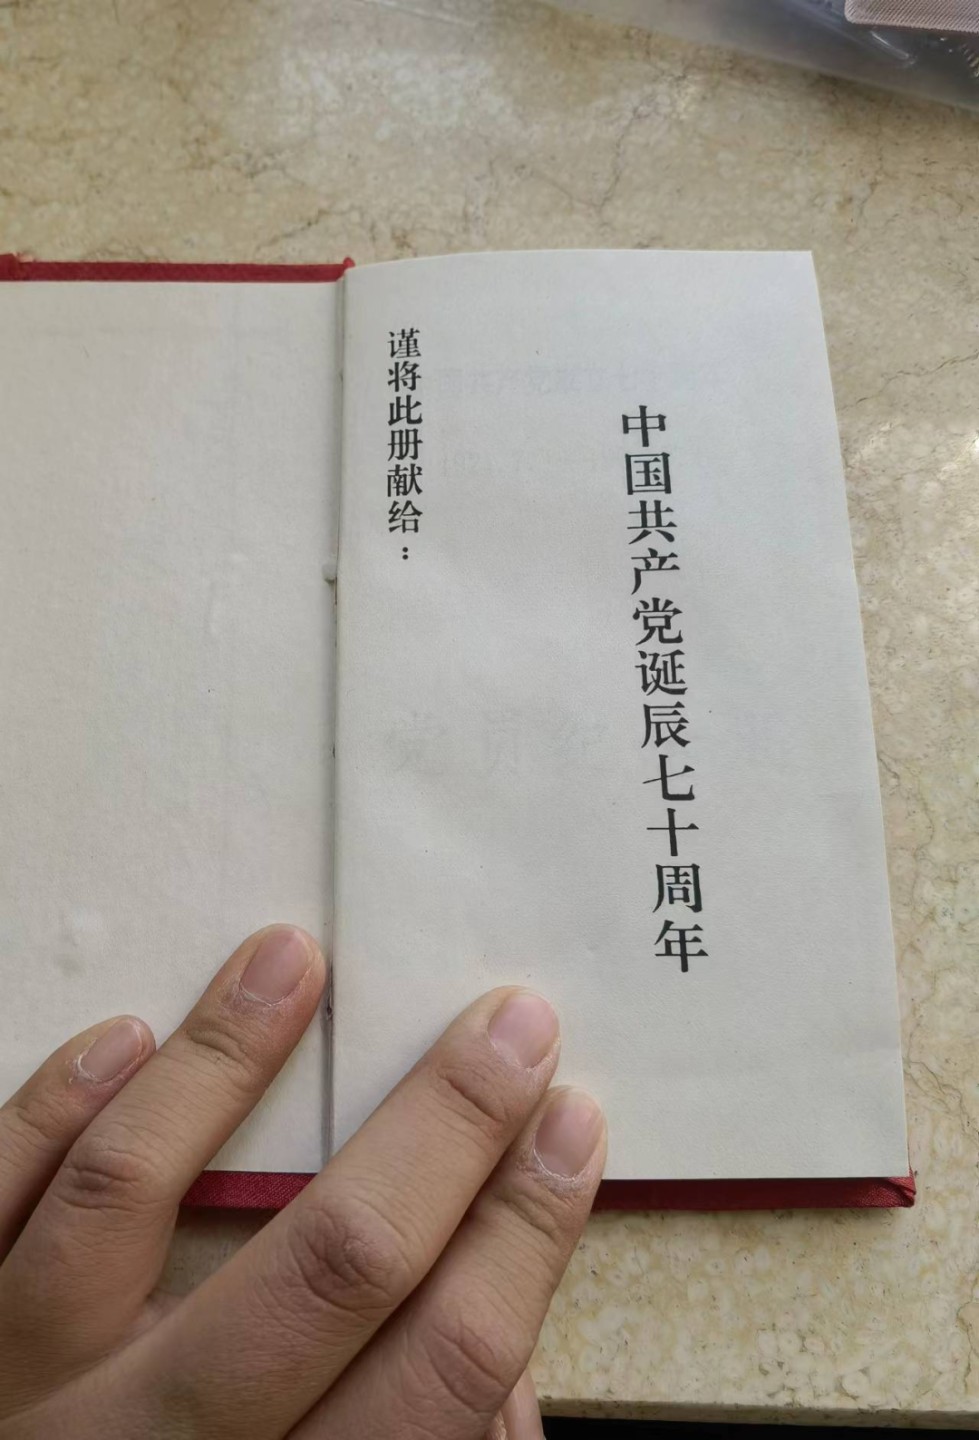 谨将此册献给：
中国共产党诞辰七十周年